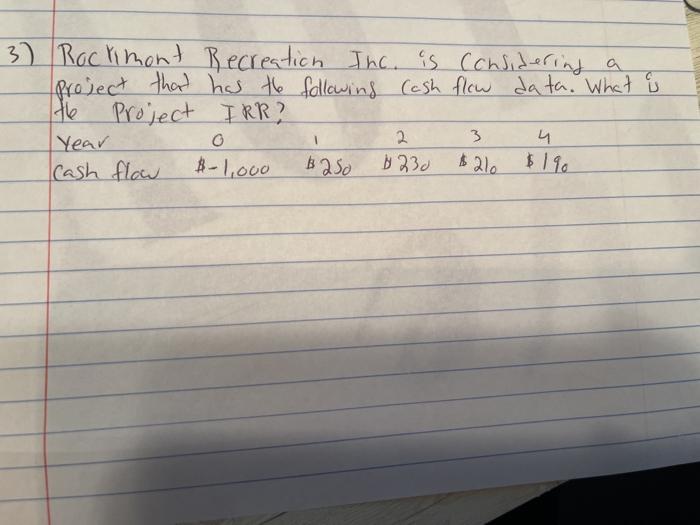 3) Rockmont Recreation Inc. is considering a
project that has the following cash flow data. What is
the Project IRR?
Year 0 1 2 3 4
Cash flow $-1,000 $250 $230 $210 $190